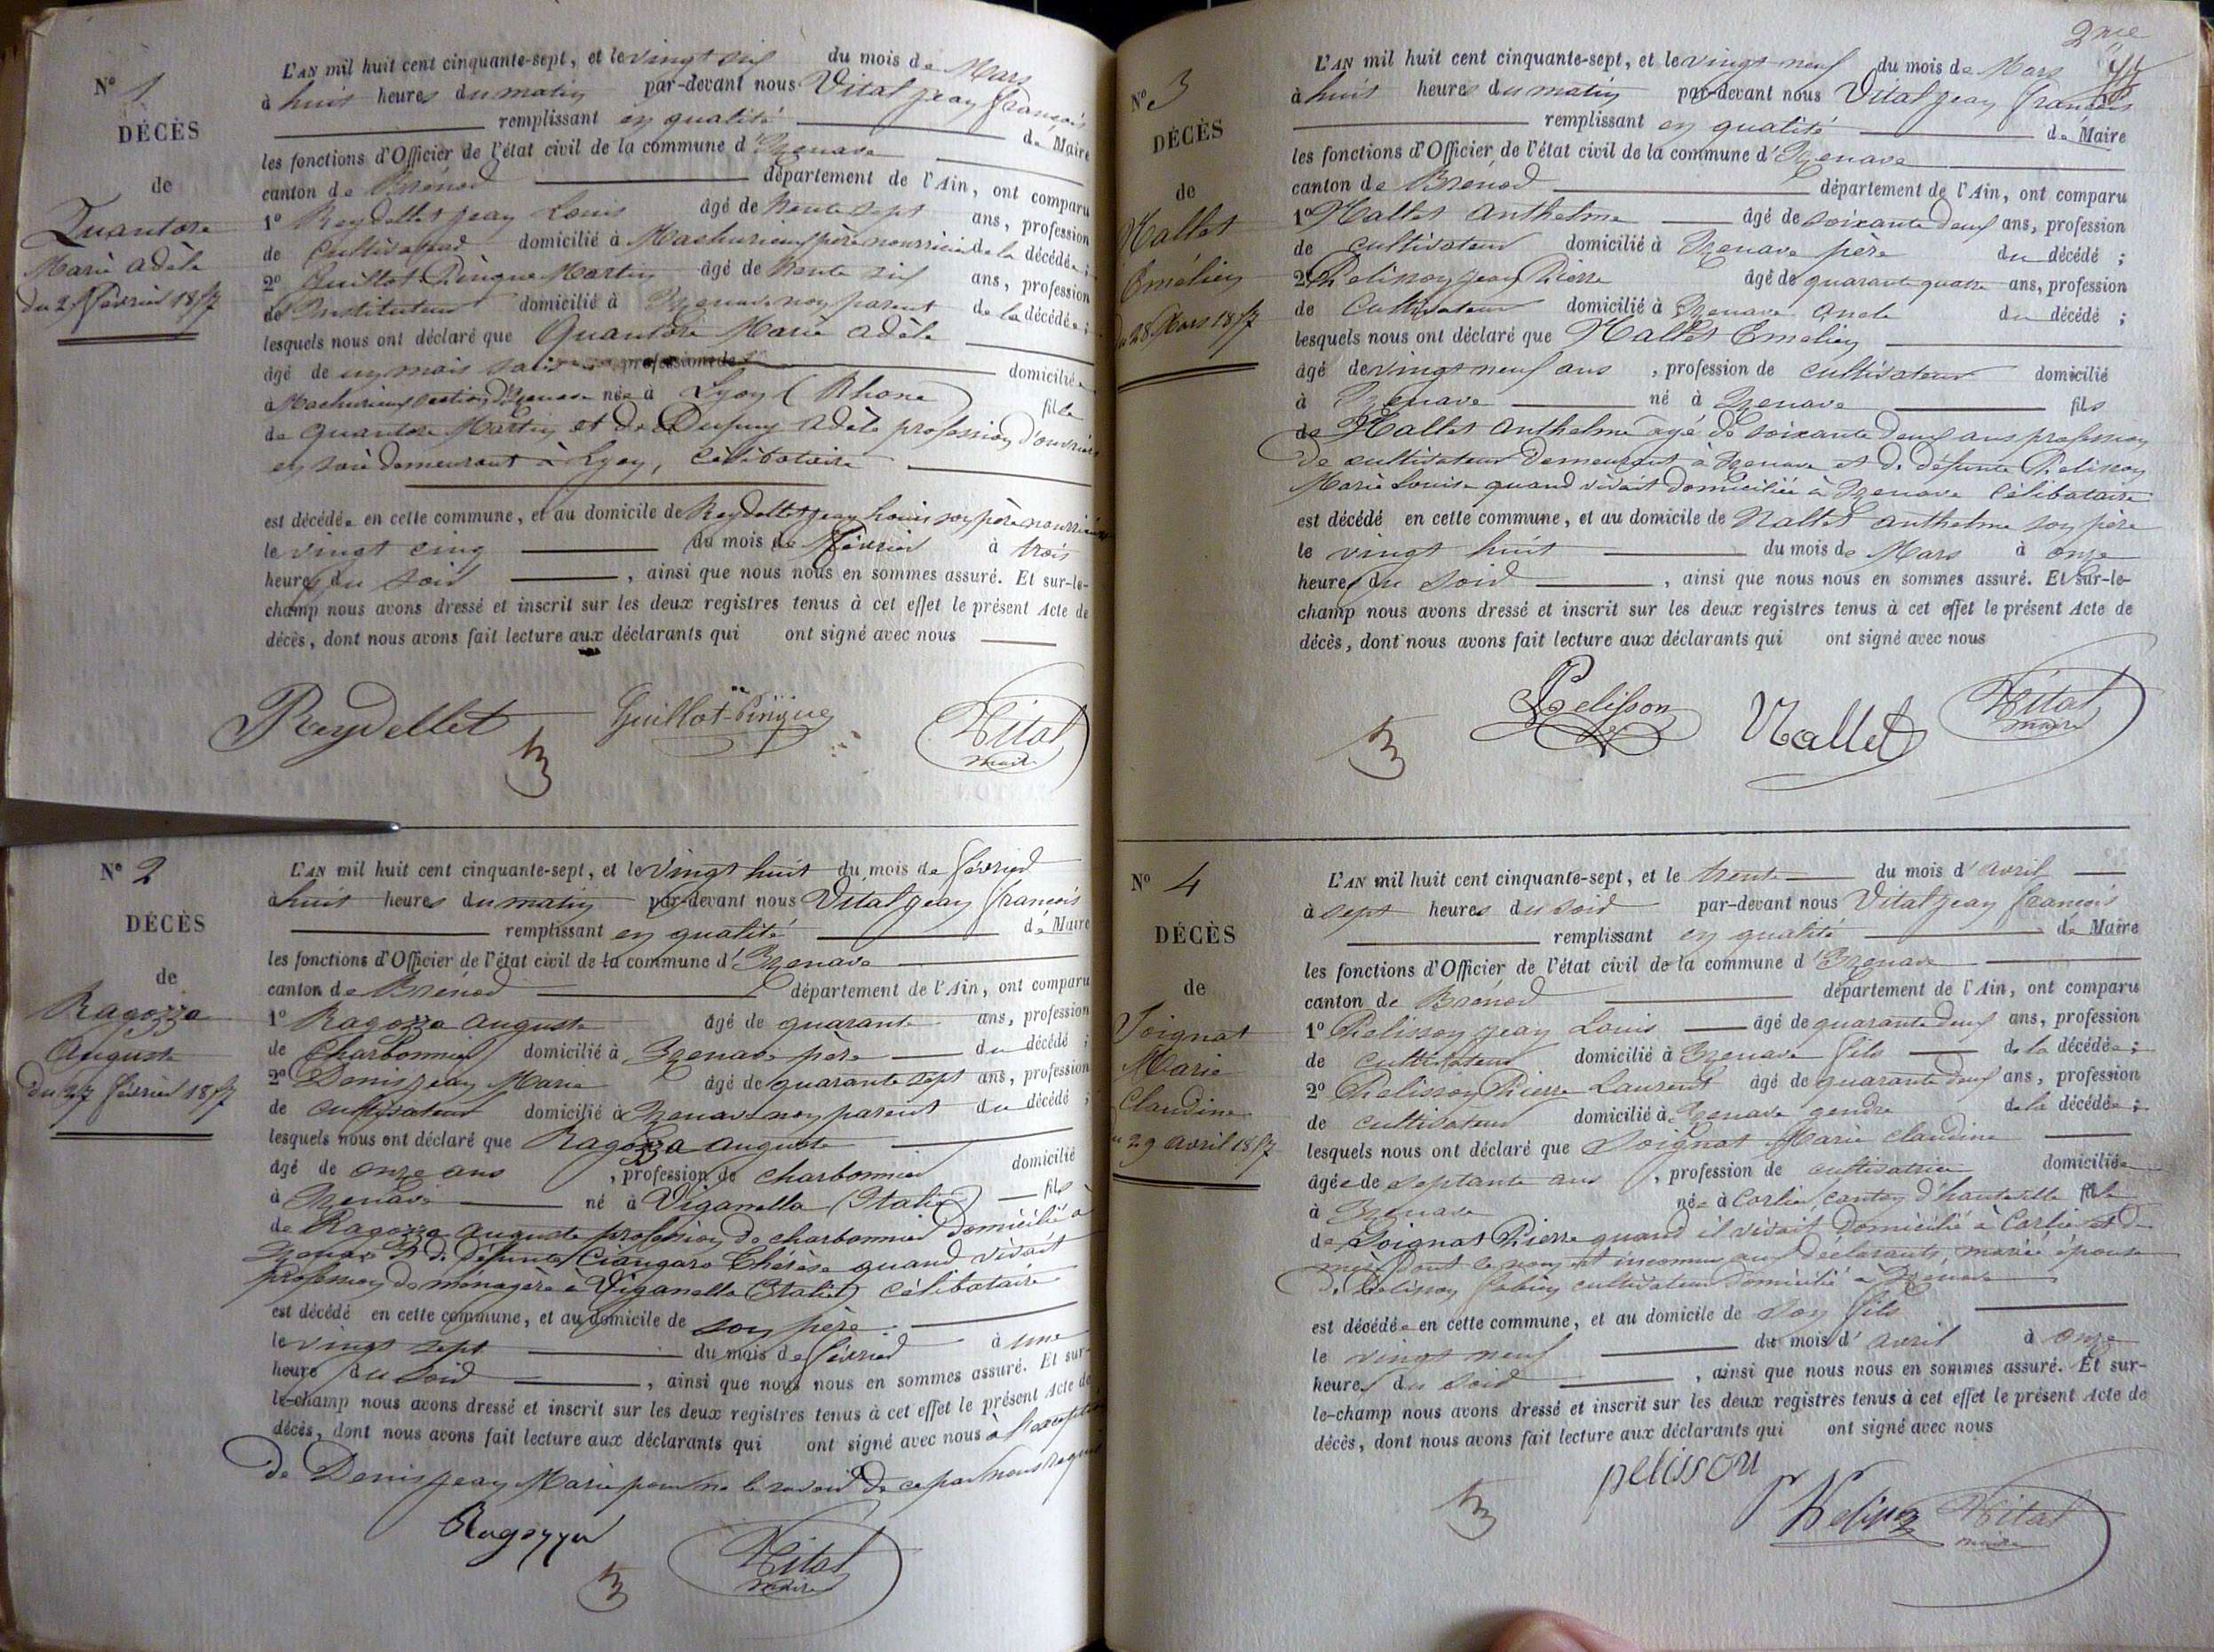 N° 1
DÉCÈS
de
Quantore
Marie adèle
du 25 février 1857
L'AN mil huit cent cinquante-sept, et le vingt six du mois de Mars
à huit heures du matin par-devant nous Vital jean françois
remplissant en qualité de Maire
les fonctions d'Officier de l'état civil de la commune d'Izenave
canton de Brénod département de l'Ain, ont comparu
1° Reydellet jean Louis âgé de trente sept ans, profession
de cultivateur domicilié à Machurieux père nourricier de la décédée ;
2° Guillot Pingue Martin âgé de trente six ans, profession
de Instituteur domicilié à Izenave non parent de la décédée ;
lesquels nous ont déclaré que Quantore Marie adèle
âgé de un mois domiciliée
à Machurieux section d'Izenave née à Lyon (Rhone) fille
de quantore Martin et de Dupuy adèle profession d'ouvriers
en soie demeurant à Lyon, célibataire
est décédée en cette commune, et au domicile de Reydellet jean Louis son père nourricier
le vingt cinq du mois de février à trois
heures du soir, ainsi que nous nous en sommes assuré. Et sur-le-
champ nous avons dressé et inscrit sur les deux registres tenus à cet effet le présent Acte de
décès, dont nous avons fait lecture aux déclarants qui ont signé avec nous
Reydellet Guillot-Pingue Vital
maire
N° 2
DÉCÈS
de
Ragozza
Auguste
du 27 février 1857
L'AN mil huit cent cinquante-sept, et le vingt huit du mois de février
à huit heures du matin par-devant nous Vital jean françois
remplissant en qualité de Maire
les fonctions d'Officier de l'état civil de la commune d'Izenave
canton de Brénod département de l'Ain, ont comparu
1° Ragozza auguste âgé de quarante ans, profession
de charbonnier domicilié à Izenave père du décédé ;
2° Denis jean Marie âgé de quarante sept ans, profession
de cultivateur domicilié à Izenave non parent du décédé ;
lesquels nous ont déclaré que Ragozza auguste
âgé de onze ans, profession de charbonnier domicilié
à Izenave né à Viganella (Italie) fils
de Ragozza auguste profession de charbonnier domicilié à
Izenave et de défunte Ciangaro Thérèse quand vivait
profession de ménagère à Viganella (Italie) célibataire
est décédé en cette commune, et au domicile de son père
le vingt sept du mois de février à une
heure du soir, ainsi que nous nous en sommes assuré. Et sur-
le-champ nous avons dressé et inscrit sur les deux registres tenus à cet effet le présent Acte de
décès, dont nous avons fait lecture aux déclarants qui ont signé avec nous à l'exception
de Denis jean Marie pour ne le savoir de ce par nous requis
Ragozza Vital
maire
2me
N° 3
DÉCÈS
de
Nallet
Emélien
du 28 Mars 1857
L'AN mil huit cent cinquante-sept, et le vingt neuf du mois de Mars
à huit heures du matin par-devant nous Vital jean françois
remplissant en qualité de Maire
les fonctions d'Officier de l'état civil de la commune d'Izenave
canton de Brénod département de l'Ain, ont comparu
1° Nallet anthelme âgé de soixante deux ans, profession
de cultivateur domicilié à Izenave père du décédé ;
2° Pelisson jean Pierre âgé de quarante quatre ans, profession
de cultivateur domicilié à Izenave oncle du décédé ;
lesquels nous ont déclaré que Nallet Emelien
âgé de vingt neuf ans, profession de cultivateur domicilié
à Izenave né à Izenave fils
de Nallet anthelme agé de soixante deux ans profession
de cultivateur demeurant a Izenave et de défunte Pelisson
Marie Louise quand vivait domiciliée à Izenave célibataire
est décédé en cette commune, et au domicile de Nallet anthelme son père
le vingt huit du mois de Mars à onze
heures du soir, ainsi que nous nous en sommes assuré. Et sur-le-
champ nous avons dressé et inscrit sur les deux registres tenus à cet effet le présent Acte de
décès, dont nous avons fait lecture aux déclarants qui ont signé avec nous
Pelisson Nallet Vital
maire
N° 4
DÉCÈS
de
Soignat
Marie
Claudine
29 avril 1857
L'AN mil huit cent cinquante-sept, et le trente du mois d'avril
à sept heures du soir par-devant nous Vital jean françois
remplissant en qualité de Maire
les fonctions d'Officier de l'état civil de la commune d'Izenave
canton de Brénod département de l'Ain, ont comparu
1° Pelisson jean Louis âgé de quarante deux ans, profession
de cultivateur domicilié à Izenave fils de la décédée ;
2° Pelisson Pierre Laurent âgé de quarante deux ans, profession
de cultivateur domicilié à Izenave gendre de la décédée ;
lesquels nous ont déclaré que Soignat Marie claudine
âgée de septante ans, profession de cultivatrice domiciliée
à Izenave née à Corlier, canton d'hauteville fille
de Soignat Pierre quand il vivait domicilié à Corlier et de
mère dont le nom est inconnu aux déclarants, mariée, épouse
de Pelisson fabien cultivateur domicilié à Izenave
est décédée en cette commune, et au domicile de son fils
le vingt neuf du mois d'avril à onze
heures du soir, ainsi que nous nous en sommes assuré. Et sur-
le-champ nous avons dressé et inscrit sur les deux registres tenus à cet effet le présent Acte de
décès, dont nous avons fait lecture aux déclarants qui ont signé avec nous
pelisson
Vital
maire